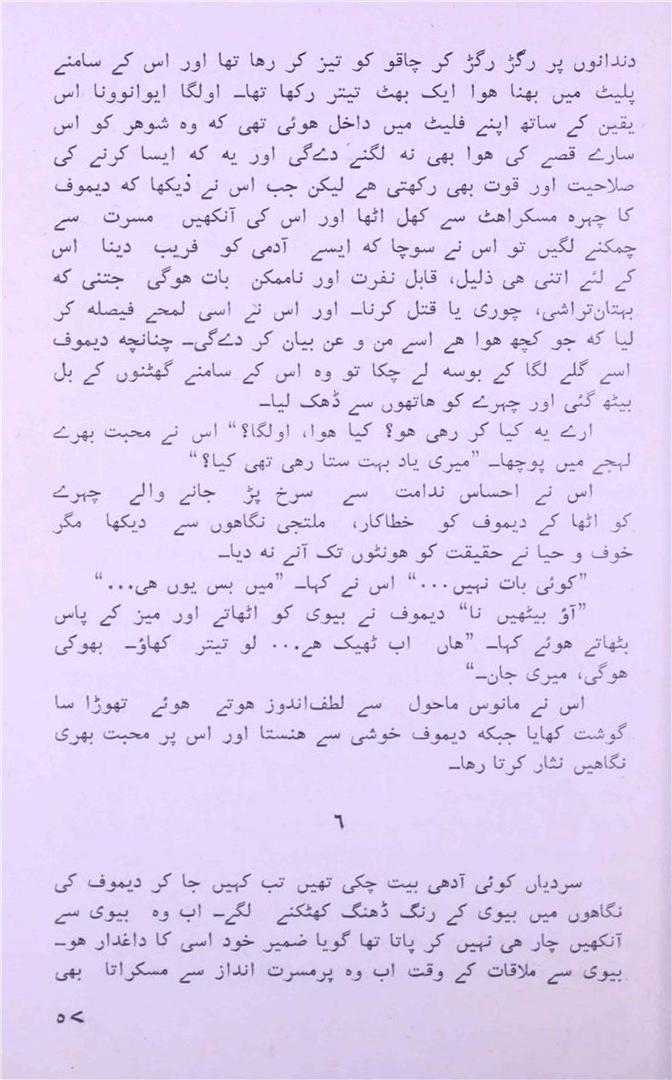 دندانوں پر رگڑ رگڑ کر چاقو کو تیز کر رہا تھا اور اس کے سامنے
پلیٹ میں بھنا ہوا ایک بھٹ تیتر رکھا تھا۔ اولگا ایوانوونا اس
یقین کے ساتھ اپنے فلیٹ میں داخل ہوئی تھی کہ وہ شوہر کو اس
سارے قصے کی ہوا بھی نہ لگنے دےگی اور یہ کہ ایسا کرنے کی
صلاحیت اور قوت بھی رکھتی ہے لیکن جب اس نے دیکھا کہ دیموف
کا چہرہ مسکراہٹ سے کھل اٹھا اور اس کی آنکھیں مسرت سے
چمکنے لگیں تو اس نے سوچا کہ ایسے آدمی کو فریب دینا اس
کے لئے اتنی ہی ذلیل، قابل نفرت اور ناممکن بات ہوگی جتنی کہ
بہتان‌تراشی، چوری یا قتل کرنا۔ اور اس نے اسی لمحے فیصلہ کر
لیا کہ جو کچھ ہوا ہے اسے من و عن بیان کر دےگی۔ چنانچہ دیموف
اسے گلے لگا کے بوسہ لے چکا تو وہ اس کے سامنے گھٹنوں کے بل
بیٹھ گئی اور چہرے کو ہاتھوں سے ڈھک لیا۔
ارے یہ کیا کر رہی ہو؟ کیا ہوا، اولگا؟“ اس نے محبت بھرے
لہجے میں پوچھا۔ ”میری یاد بہت ستا رہی تھی کیا؟“
اس نے احساس ندامت سے سرخ پڑ جانے والے چہرے
کو اٹھا کے دیموف کو خطاکار، ملتجی نگاہوں سے دیکھا مگر
خوف و حیا نے حقیقت کو ہونٹوں تک آنے نہ دیا۔
”کوئی بات نہیں...“ اس نے کہا۔ ”میں بس یوں ہی...“
”آؤ بیٹھیں نا“ دیموف نے بیوی کو اٹھاتے اور میز کے پاس
بٹھاتے ہوئے کہا۔ ”ہاں اب ٹھیک ہے... لو تیتر کھاؤ۔ بھوکی
ہوگی، میری جان۔“
اس نے مانوس ماحول سے لطف‌اندوز ہوتے ہوئے تھوڑا سا
گوشت کھایا جبکہ دیموف خوشی سے ہنستا اور اس پر محبت بھری
نگاہیں نثار کرتا رہا۔
٦
سردیاں کوئی آدھی بیت چکی تھیں تب کہیں جا کر دیموف کی
نگاہوں میں بیوی کے رنگ ڈھنگ کھٹکنے لگے۔ اب وہ بیوی سے
آنکھیں چار ہی نہیں کر پاتا تھا گویا ضمیر خود اسی کا داغدار ہو۔
بیوی سے ملاقات کے وقت اب وہ پرمسرت انداز سے مسکراتا بھی
۵۷